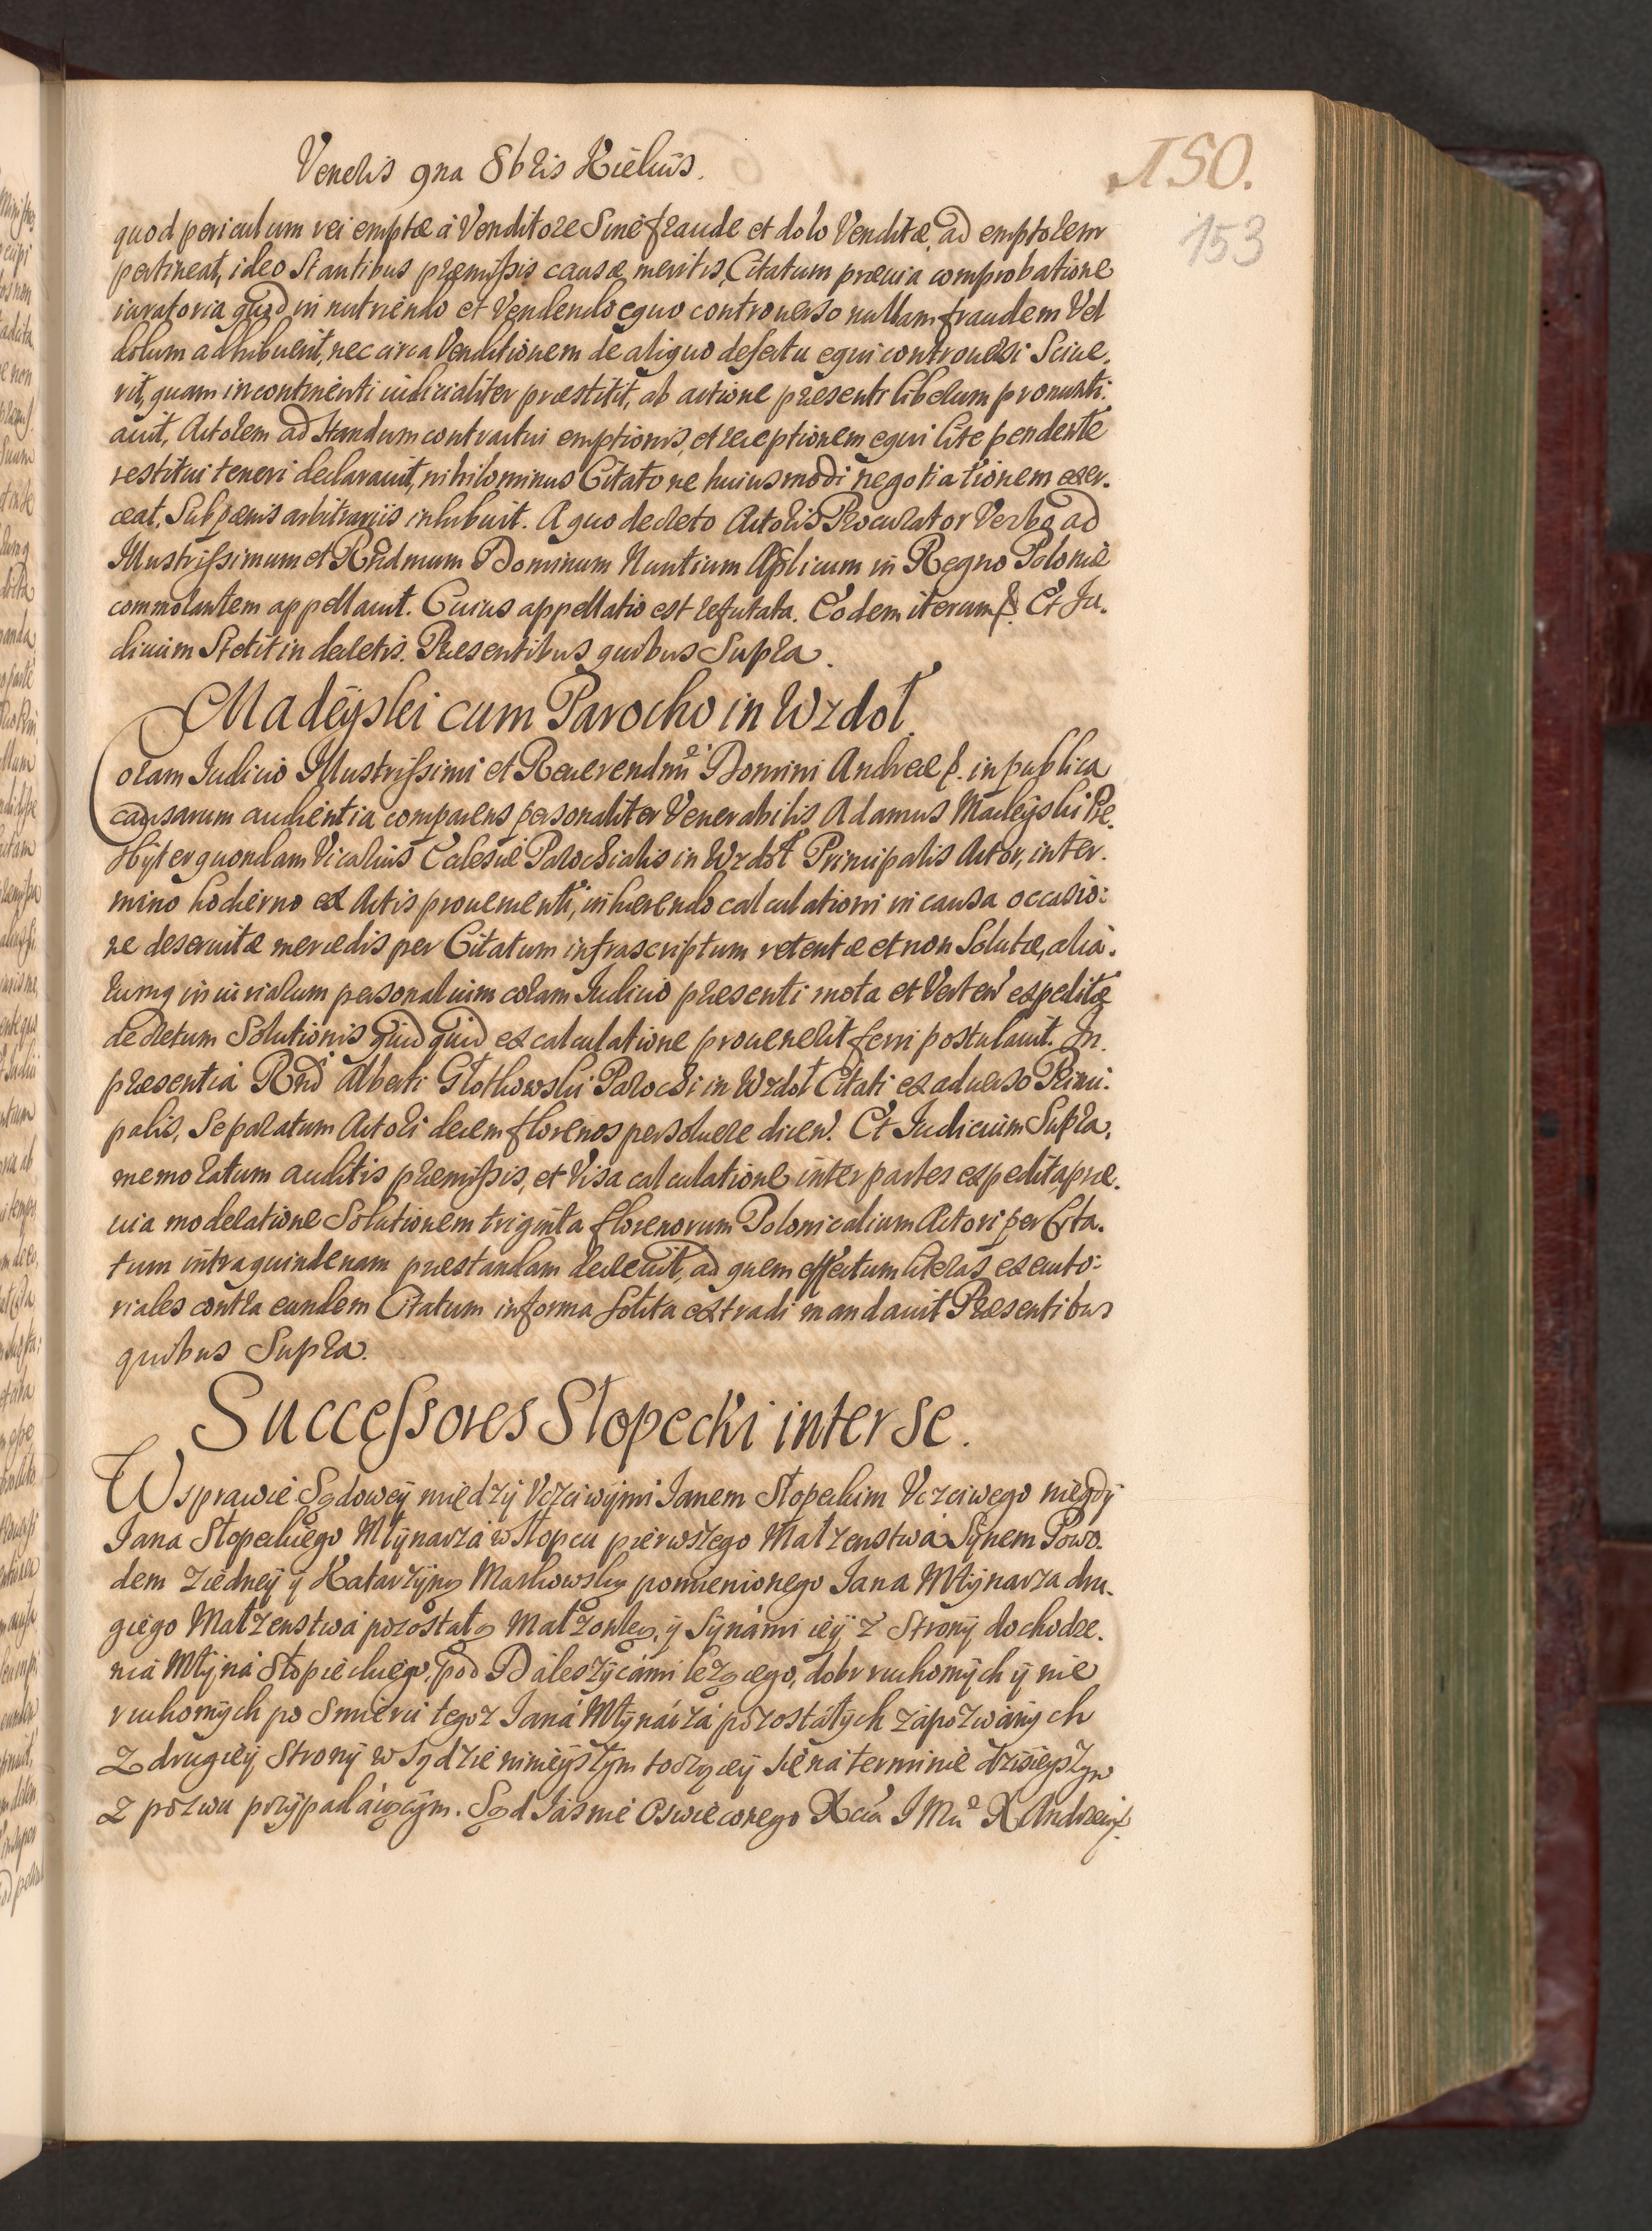 Veneris 9na 8bris Kielciis.
150.
153
quod periculum rei emptæ à Venditore Sine fraude et dolo Venditæ, ad emptorem
pertineat, ideo Stantibus præmissis causæ meritis, Citatum prævia comprobatione
iuratoria quod in nutriendo et Vendendo equo controverso nullam fraudem Vel
dolum adhibuerit, nec circa Venditionem de aliquo defectu equi controversi Scive.
rit, quam incontinenti iudicialiter præstitit, ab actione præsenti liberum pronunti:
auit, Actorem ad Standum contractui emptionis, et receptionem equi lite pendente
restitui teneri declarauit, nihilominus Citato ne huiusmodi negotiationem exer.
ceat, Sub pœnis arbitrariis inhibuit. A quo decreto Actoris Procurator Verbo ad
Illustrissimum et Rndmum Dominum Nuntium Aplicum in Regno Poloniæ
commorantem appellauit. Cuius appellatio est refutata. Eodem iterum &. Et Iu.
dicium Stetit in decretis. Præsentibus quibus Supra.
Madeyski cum Parocho in Wzdoł.
Coram Iudicio Illustrissimi et Reuerendmi Domini Andreæ &. in publica
causarum audientia comparens personaliter Venerabilis Adamus Madeyski Pre.
sbyter quondam Vicarius Ecclesiæ Parochialis in Wzdoł Principalis Actor, in ter.
mino hodierno ex Actis prouenienti, inhærendo calculationi in causa occasio:
ne deseruitæ mercedis per Citatum infrascriptum retentæ et non Solutæ, alia.
rumq iniuriarum personalium coram Iudicio præsenti mota et Verten expeditæ
decretum Solutionis quid quid ex calculatione prouenerit ferri postulauit. In
præsentia Rnd Alberti Głotkowski Parochi in Wzdoł Citati ex aduerso Princi.
palis, Se paratum Actori decem florenos persoluere dicen. Et Iudicium Supra.
memoratum auditis præmissis, et Visa calculatione inter partes expedita præ.
uia moderatione Solutionem triginta florenorum Polonicalium Actori per Cita.
tum intra quindenam præstandam decreuit, ad quem effectum literas executo:
riales contra eundem Citatum in forma Solita extradi mandauit Præsentibus
quibus Supra.
Successores Stopecki inter se.
W sprawie Sądowey między Vczciwymi Ianem Stopeckim Vczciwego niegdy
Iana Stopeckiego Młynarza w Stopcu pierwszego Małzenstwa Synem Powo.
dem z iedney y Katarzyną Markowską pomienionego Iana Młynarza dru.
giego Małzenstwa pozostałą Małzonką, y Synámi iey z Strony dochodze.
nia Młyná Stopieckiego, pod Dáleszycámi lezącego, dobr ruchomych y nie
ruchomych po Smierci tegoz Ianá Młynárzá pozostáłych zápozwánych
Z drugiey Strony w Sądzie ninieyszym toczącey się ná terminie dzisieyszym
z pozwu przypadáiącym. Sąd Iásnie Oswieconego Xcia I Mci X Andrzeia &.